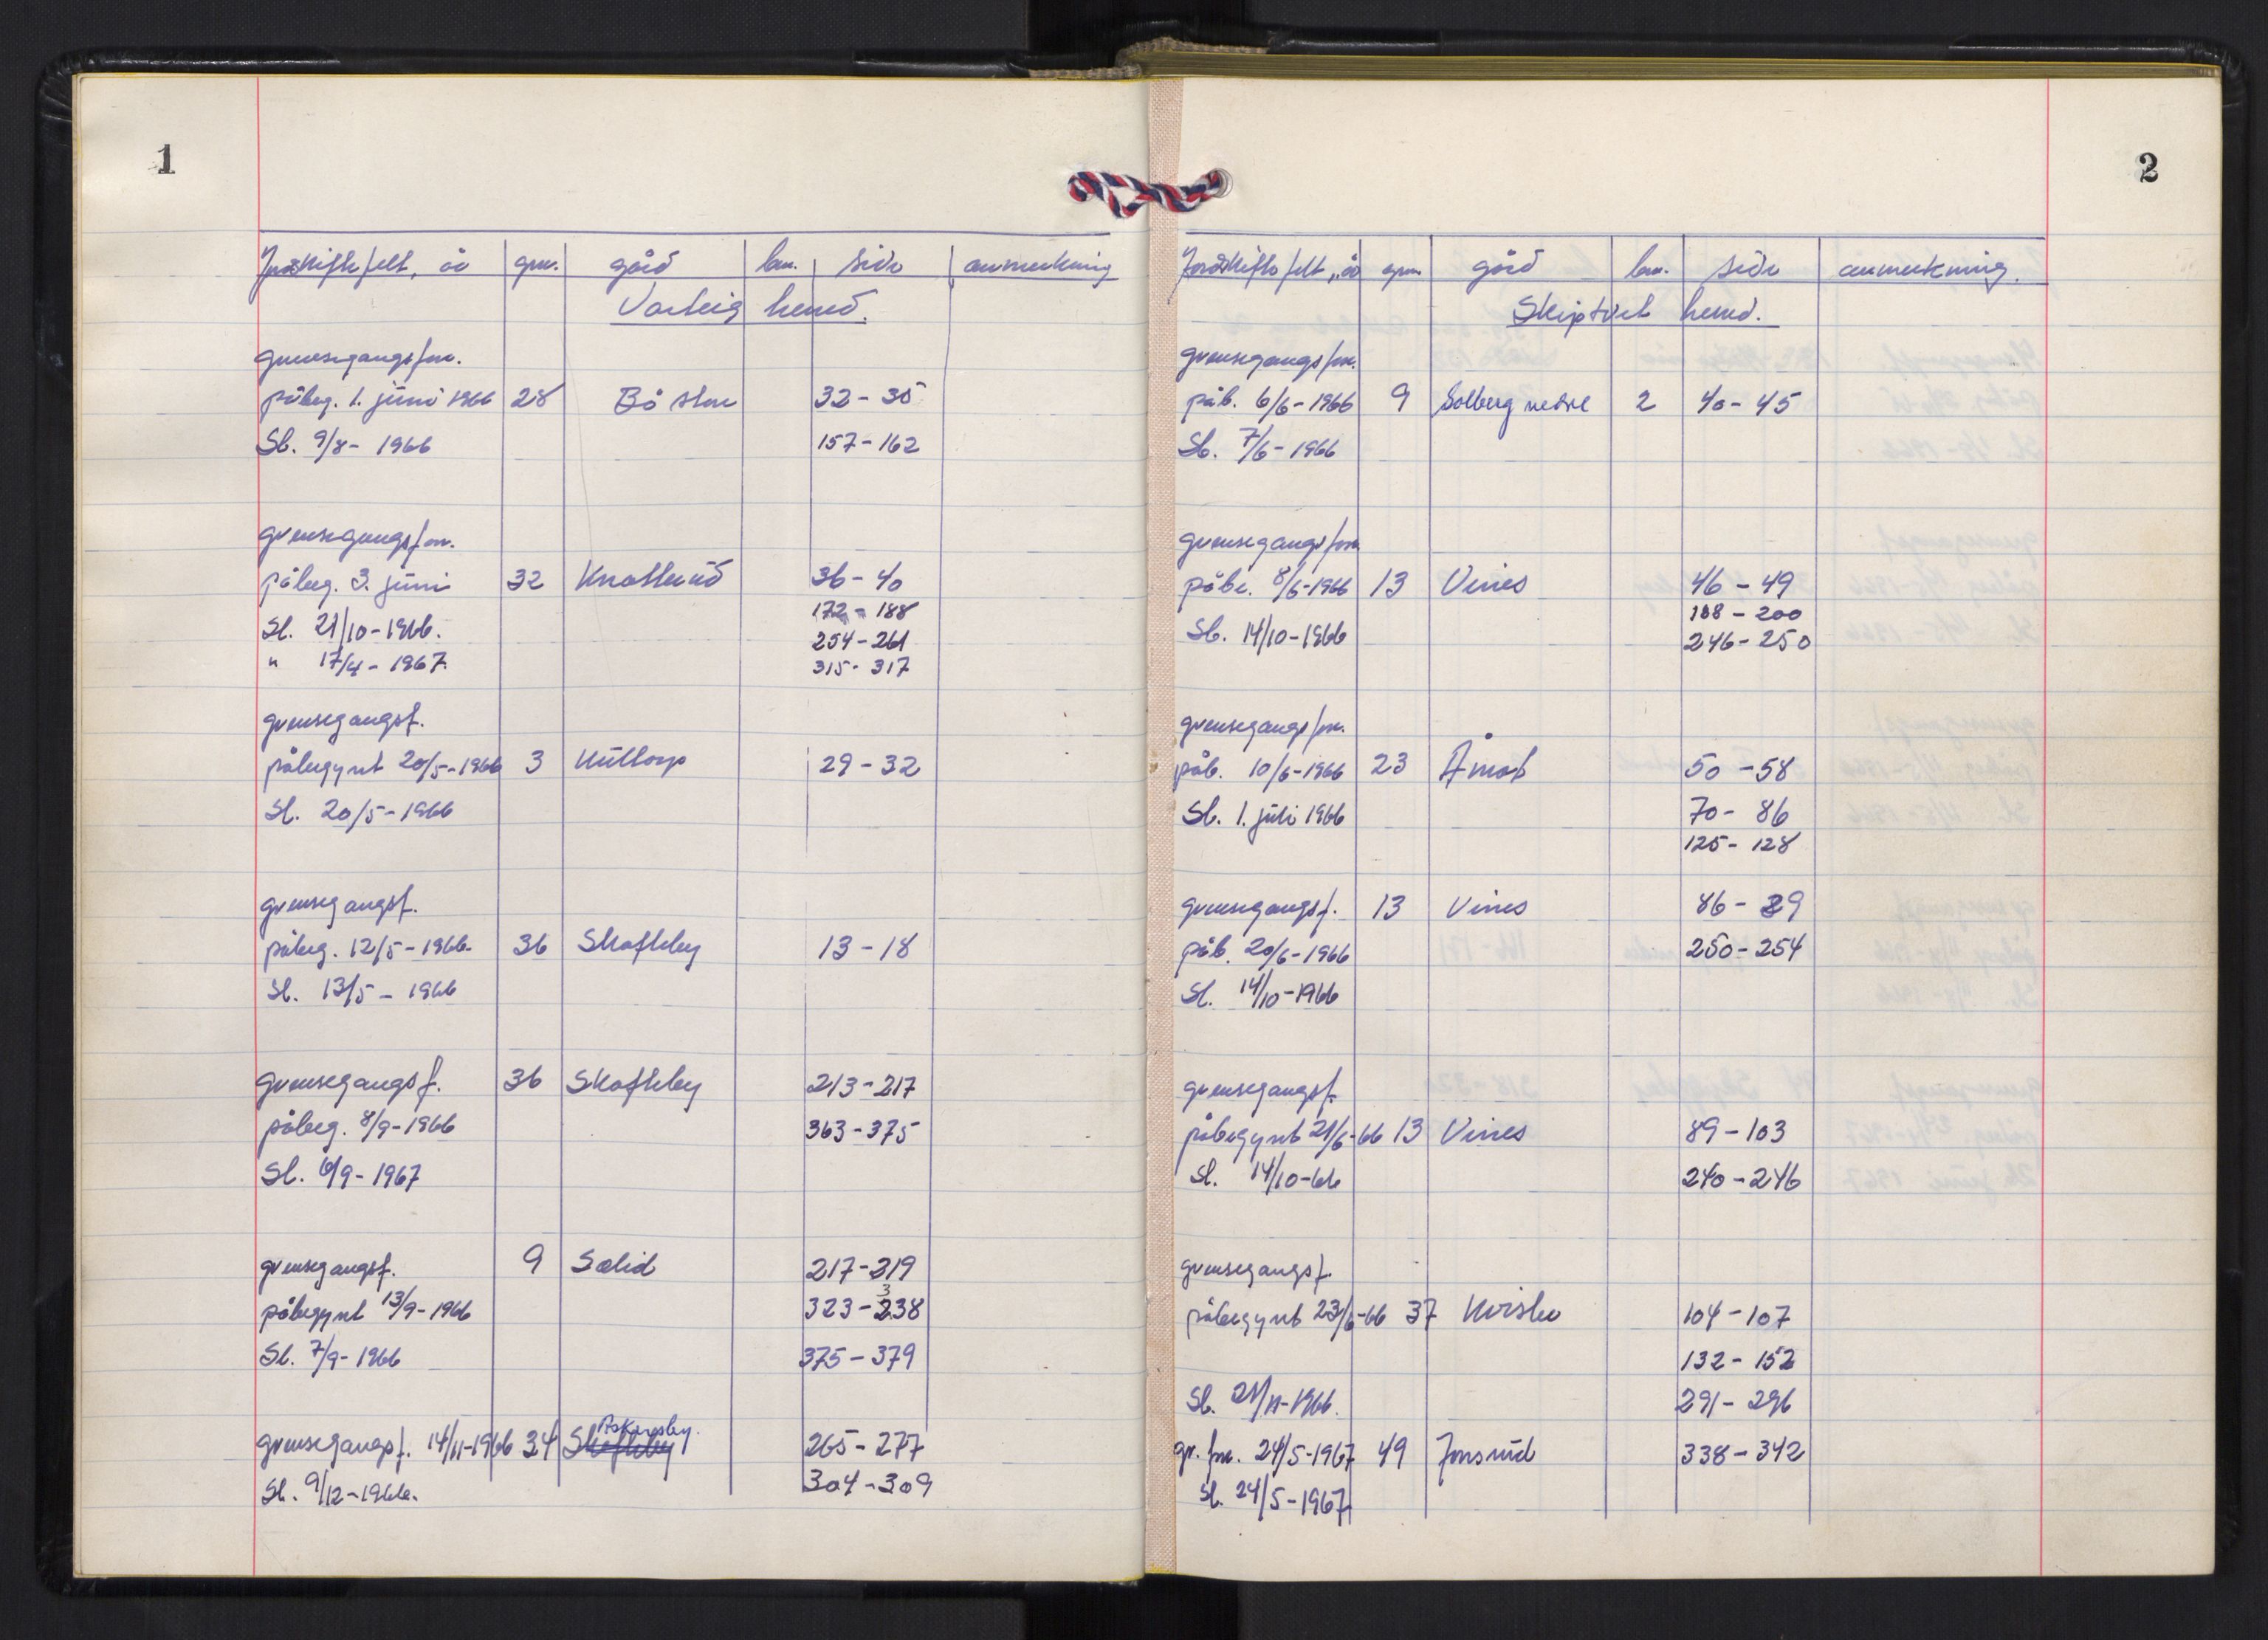 1
Jordskiftefelt, år gnr. gård bnr. side anmerkning
Varteig herred.
grensegangsforr.
påbeg. 1. juni 1966 28 Bø store 32-35
Sl. 9/8-1966 157-162
grensegangsforr.
påbeg. 3. juni 32 Knatterud 36-40
172-188
Sl. 21/10-1966. 254-261
" 17/4-1967. 315-317
grensegangsf.
påbegynt 20/5-1966 3 Hultorp 29-32
Sl. 20/5-1966
grensegangsf.
påbeg. 12/5-1966. 36 Skofteby 13-18
Sl. 13/5-1966
grensegangsf. 36 Skofteby 213-217
påbeg. 8/9-1966 363-375
Sl. 6/9-1967
grensegangsf. 9 Sælid 217-219
påbegynt 13/9-1966 323-338
Sl. 7/9-1966 375-379
Askimsby.
grensegangsf. 14/11-1966 34 Skofteby 265-277
Sl. 9/12-1966. 304-309
2
Jordskiftefelt, år gnr. gård bnr. side anmerkning.
Skiptvet herred.
grensegangsforr.
påb. 6/6-1966 9 Solberg nedre 2 40-45
Sl. 7/6-1966
grensegangsforr
påbe. 8/6-1966 13 Vines 46-49
188-200
Sl. 14/10-1966 246-250
grensegangsforr.
påb. 10/6-1966 23 Åmot 50-58
Sl. 1. juli 1966 70-86
125-128
grensegangsf. 13 Vines 86-89
påb. 20/6-1966 250-254
Sl. 14/10-1966
grensegangsf.
påbegynt 21/6-66 13 Vines 89-103
Sl. 14/10-66 240-246
grensegangsf.
påbegynt 23/6-66 37 Kvisler 104-107
132-152
Sl. 21/11-1966. 291-296
gr. forr. 24/5-1967 49 Jonsrud 338-342
Sl. 24/5-1967